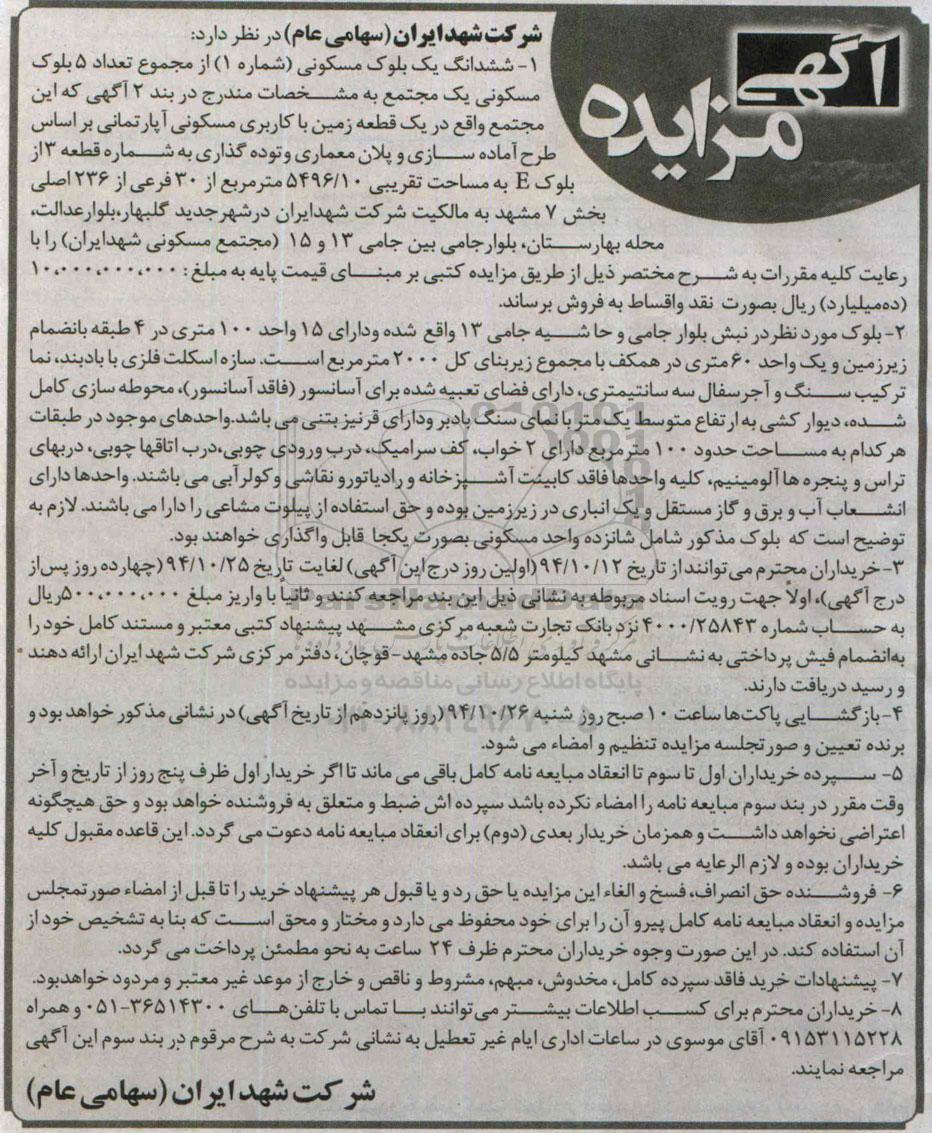 آگهی
مزایده
شرکت شهد ایران (سهامی عام) در نظر دارد:
۱- ششدانگ یک بلوک مسکونی (شماره ۱) از مجموع تعداد ۵ بلوک
مسکونی یک مجتمع به مشخصات مندرج در بند ۲ آگهی که این
مجتمع واقع در یک قطعه زمین با کاربری مسکونی آپارتمانی بر اساس
طرح آماده سازی و پلان معماری وتوده گذاری به شماره قطعه ۳ از
بلوک E به مساحت تقریبی ۵۴۹۶/۱۰ مترمربع از ۳۰ فرعی از ۲۳۶ اصلی
بخش ۷ مشهد به مالکیت شرکت شهدایران درشهرجدید گلبهار،بلوارعدالت،
محله بهارستان، بلوارجامی بین جامی ۱۳ و ۱۵ (مجتمع مسکونی شهدایران) را با
رعایت کلیه مقررات به شرح مختصر ذیل از طریق مزایده کتبی بر مبنای قیمت پایه به مبلغ: ۱۰،۰۰۰،۰۰۰،۰۰۰
(ده‌میلیارد) ریال بصورت نقد واقساط به فروش برساند.
۲- بلوک مورد نظر در نبش بلوار جامی و حاشیه جامی ۱۳ واقع شده ودارای ۱۵ واحد ۱۰۰ متری در ۴ طبقه بانضمام
زیرزمین و یک واحد ۶۰ متری در همکف با مجموع زیربنای کل ۲۰۰۰ مترمربع است. سازه اسکلت فلزی با بادبند، نما
ترکیب سنگ و آجرسفال سه سانتیمتری، دارای فضای تعبیه شده برای آسانسور (فاقد آسانسور)، محوطه سازی کامل
شده، دیوار کشی به ارتفاع متوسط یک متر با نمای سنگ بادبر ودارای قرنیز بتنی می باشد.واحدهای موجود در طبقات
هر کدام به مساحت حدود ۱۰۰ مترمربع دارای ۲ خواب، کف سرامیک، درب ورودی چوبی،درب اتاقها چوبی، دربهای
تراس و پنجره ها آلومینیم، کلیه واحدها فاقد کابینت آشپزخانه و رادیاتورو نقاشی وکولرآبی می باشند. واحدها دارای
انشعاب آب و برق و گاز مستقل و یک انباری در زیرزمین بوده و حق استفاده از پیلوت مشاعی را دارا می باشند. لازم به
توضیح است که بلوک مذکور شامل شانزده واحد مسکونی بصورت یکجا قابل واگذاری خواهند بود.
۳-خریداران محترم می‌توانند از تاریخ ۹۴/۱۰/۱۲ (اولین روز درج این آگهی) لغایت تاریخ ۹۴/۱۰/۲۵ (چهارده روز پس از
درج آگهی)، اولاً جهت رویت اسناد مربوطه به نشانی ذیل این بند مراجعه کنند و ثانیاً با واریز مبلغ ۵۰۰،۰۰۰،۰۰۰ ریال
به حساب شماره ۴۰۰۰/۲۵۸۴۳ نزد بانک تجارت شعبه مرکزی مشهد پیشنهاد کتبی معتبر و مستند کامل خود را
به‌انضمام فیش پرداختی به نشانی مشهد کیلومتر ۵/۵ جاده مشهد-قوچان، دفتر مرکزی شرکت شهد ایران ارائه دهند
و رسید دریافت دارند.
۴-بازگشایی پاکت‌ها ساعت ۱۰ صبح روز شنبه ۹۴/۱۰/۲۶ (روز پانزدهم از تاریخ آگهی) در نشانی مذکور خواهد بود و
برنده تعیین و صورتجلسه مزایده تنظیم و امضاء می شود.
۵- سپرده خریداران اول تا سوم تا انعقاد مبایعه نامه کامل باقی می ماند تا اگر خریدار اول ظرف پنج روز از تاریخ و آخر
وقت مقرر در بند سوم مبایعه نامه را امضاء نکرده باشد سپرده اش ضبط و متعلق به فروشنده خواهد بود و حق هیچگونه
اعتراضی نخواهد داشت و همزمان خریدار بعدی (دوم) برای انعقاد مبایعه نامه دعوت می گردد. این قاعده مقبول کلیه
خریداران بوده و لازم الرعایه می باشد.
۶- فروشنده حق انصراف، فسخ و الغاء این مزایده یا حق رد و یا قبول هر پیشنهاد خرید را تا قبل از امضاء صورتمجلس
مزایده و انعقاد مبایعه نامه کامل پیرو آن را برای خود محفوظ می دارد و مختار و محق است که بنا به تشخیص خود از
آن استفاده کند. در این صورت وجوه خریداران محترم ظرف ۲۴ ساعت به نحو مطمئن پرداخت می گردد.
۷- پیشنهادات خرید فاقد سپرده کامل، مخدوش، مبهم، مشروط و ناقص و خارج از موعد غیر معتبر و مردود خواهدبود.
۸-خریداران محترم برای کسب اطلاعات بیشتر می‌توانند با تماس با تلفن‌های ۳۶۵۱۴۳۰۰-۰۵۱ و همراه
۰۹۱۵۳۱۱۵۲۲۸ آقای موسوی در ساعات اداری ایام غیر تعطیل به نشانی شرکت به شرح مرقوم در بند سوم این آگهی
مراجعه نمایند.
شرکت شهد ایران (سهامی عام)
ParsNamadData
پایگاه اطلاع رسانی مناقصه و مزایده